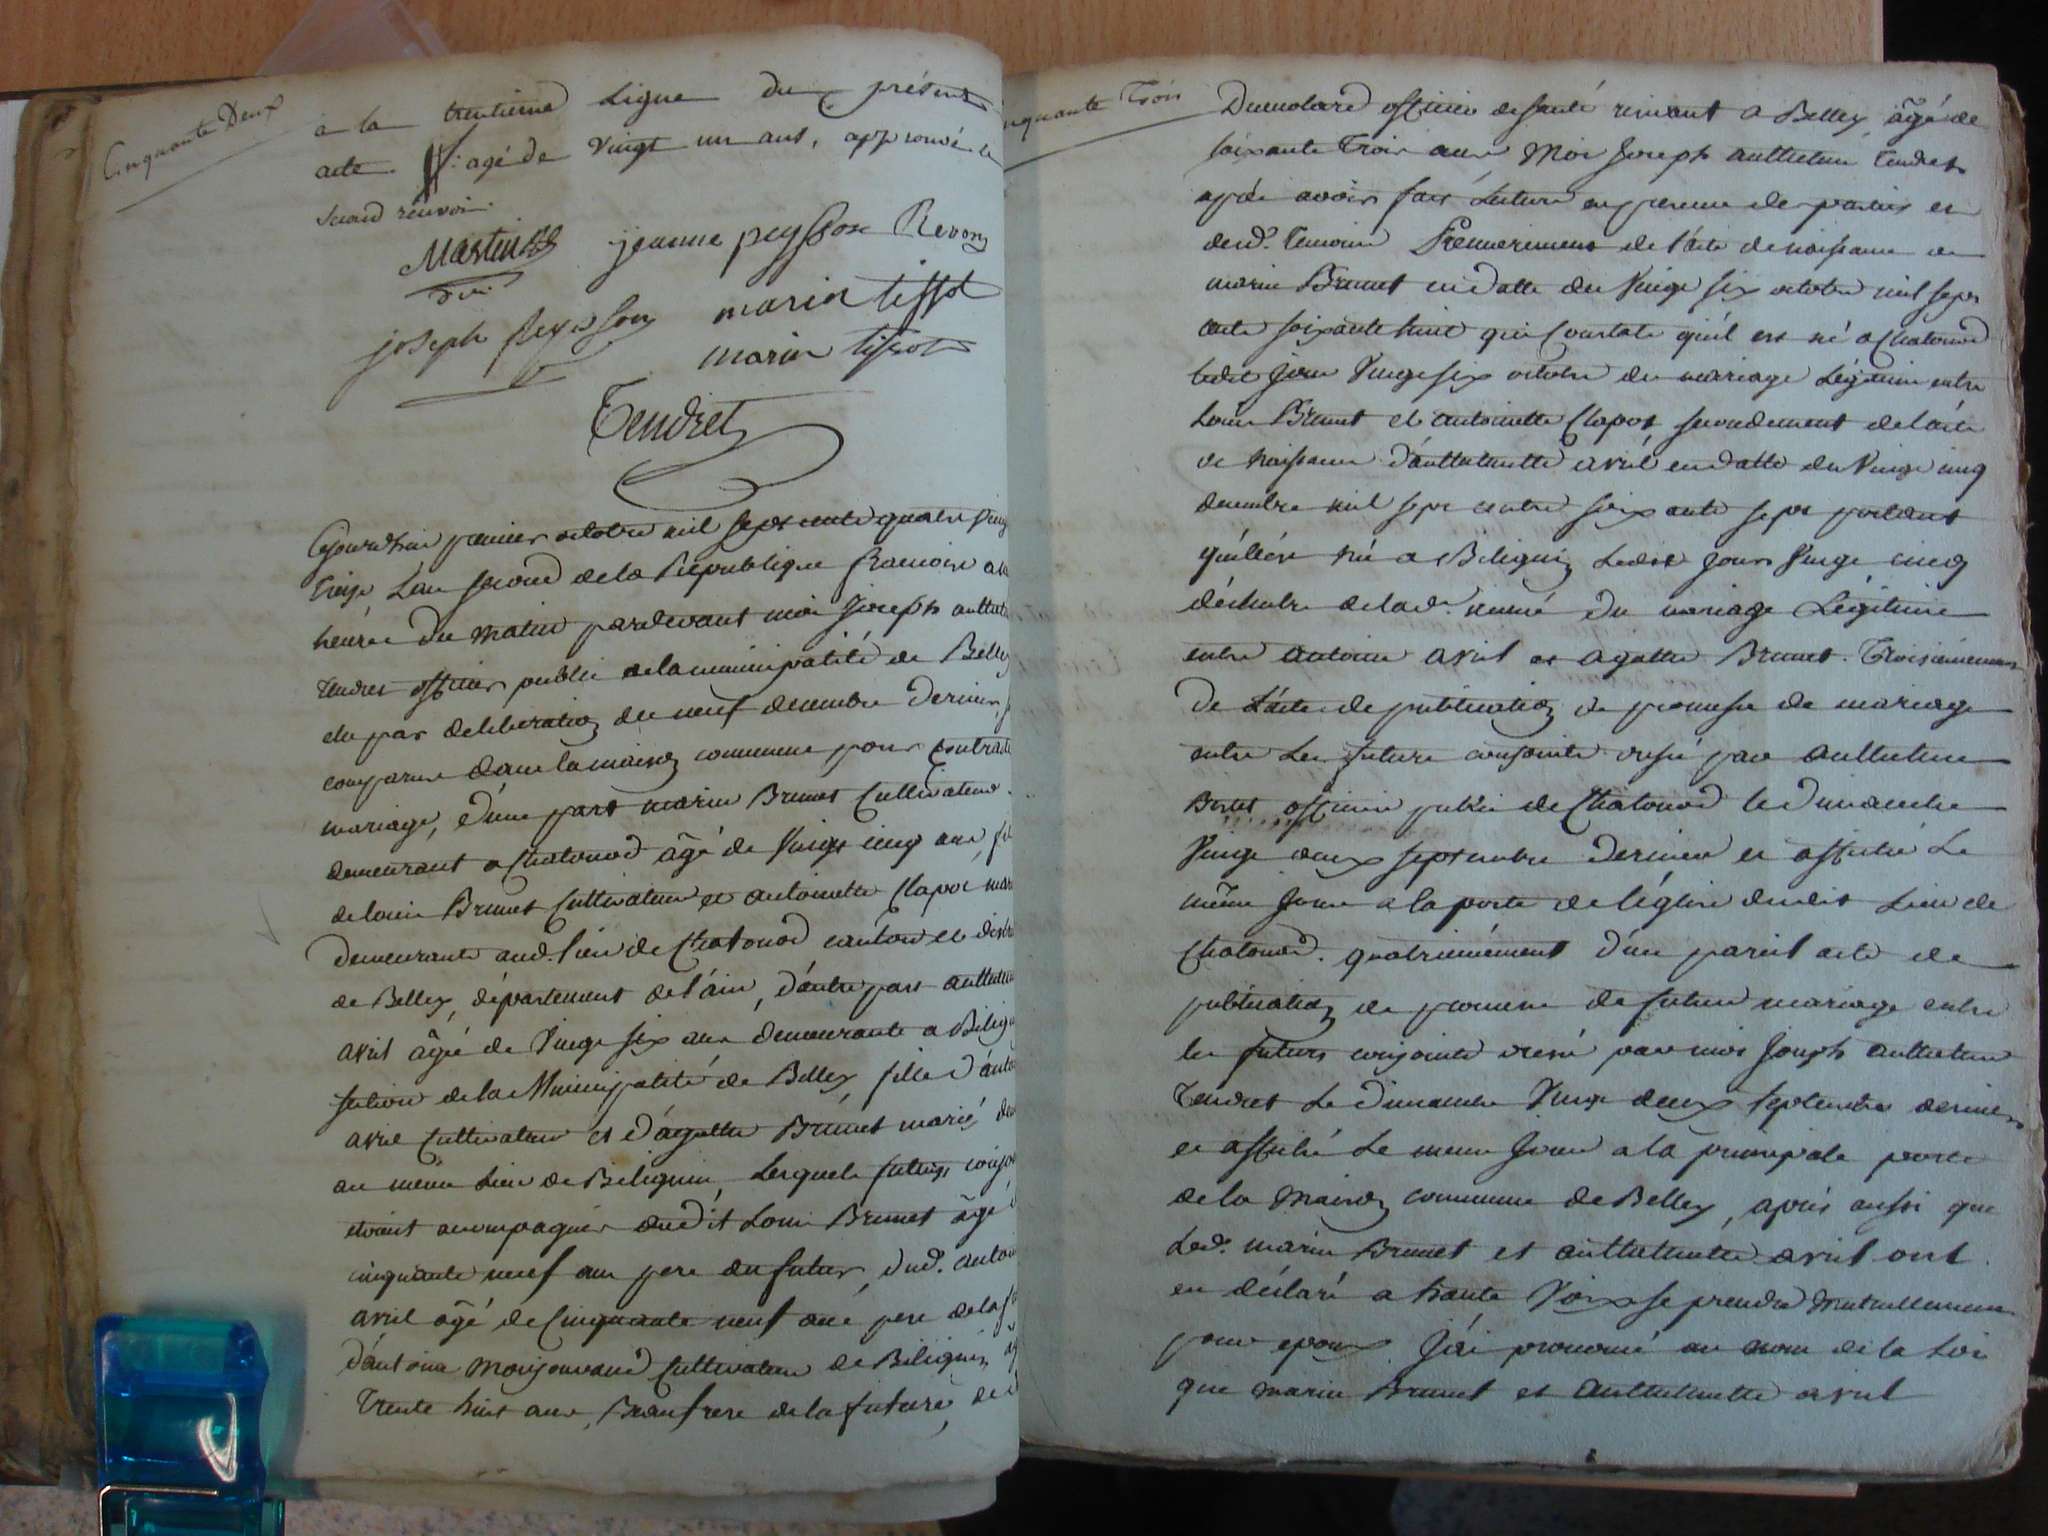 Cinquante Deux
a la trentieme Ligne du présent
acte : agé de vingt un ans, approuvé le
second renvoi
Martin
jeanne peysson Revon
joseph peysson
marin tissot
marin tissot
Tendret
Cejourdhui premier octobre mil sept cents quatre vingt
treize L'an second de la République francoise a
heures du matin pardevant moi Joseph anthelm
Tendret officier public de la municipalité de Belley
élu par deliberation du neuf decembre dernier,
comparus dans la maison commune pour contracter
mariage, d'une part marin Brunet Cultivateur
demeurant a Chatonod âgé de Vingt cinq ans, fils
de Louis Brunet Cultivateur et antoinette Clapot mar
demeurants aud. lieu de Chatonod canton et district
de Belley, département de l'ain, d'autre part anthelm
avril âgée de Vingt six ans demeurante a Bilign
section de la Municipalité de Belley fille d'antoi
avril Cultivateur et d'agathe Brunet mariés dem
au même Lieu de Bilignin, Lesquels futurs conjoi
etoient accompagnés dudit Louis Brunet âgé
cinquante neuf ans pere du futur, dud. antoin
avril âgé de Cinquante neuf ans pere de la f
d'antoine Monjouvand Cultivateur de Bilignin
Trente huit ans, Beaufrere de la future, de
nquante Trois
Dumolard officier de santé résidant a Belley âgé de
soixante Trois ans, Moi Joseph anthelme Tendret
après avoir fait Lecture en presence des parties et
desd. Temoins Premierement de l'acte de naissance de
marin Brunet en datte du Vingt six octobre mil sept
cents soixante huit qui Constate qu'il est né a Chatonod
ledit jour Vingt six octobre du mariage Légitime entre
Louis Brunet et antoinette Clapot secondement de l'acte
de naissance d'anthelmette avril en datte du Vingt cinq
decembre mil sept cents soixante sept portant
qu'elle est née a Bilignin Ledit jour Vingt cinq
décembre de lad. année du mariage Légitime
entre antoine avril et agathe Brunet. Troisiemement
de l'acte de publication de promesse de mariage
entre Les futurs conjoints dressé par anthelme
officier public de Chatonod le dimanche
Vingt deux septembre dernier et affiché Le
même jour a la porte de l'église dudit Lieu de
Chatonod. quatriemement d'un pareil acte de
publication de promesse de futur mariage entre
les futurs conjoints dressé par moi Joseph anthelme
Tendret Le dimanche Vingt deux septembre dernier
et affiché Le meme jour a la principale porte
de la Maison commune de Belley, après aussi que
Led. marin Brunet et anthelmette avril ont
eu déclaré a haute Voix se prendre mutuellement
pour epoux. J'ai prononcé au nom de la Loi
que marin Brunet et anthelmette avril